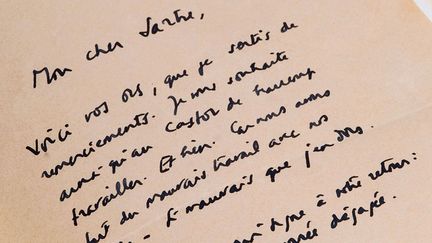 Mon cher Sartre,
Voici vos ors, que je sortis de
remerciements. Je vous souhaite
ainsi qu'au Castor de beaucoup
travailler. Et bien. Car nous avons
fait du mauvais travail avec nos
Si mauvais que j'en dors.
signe à notre retour:
dégagée.